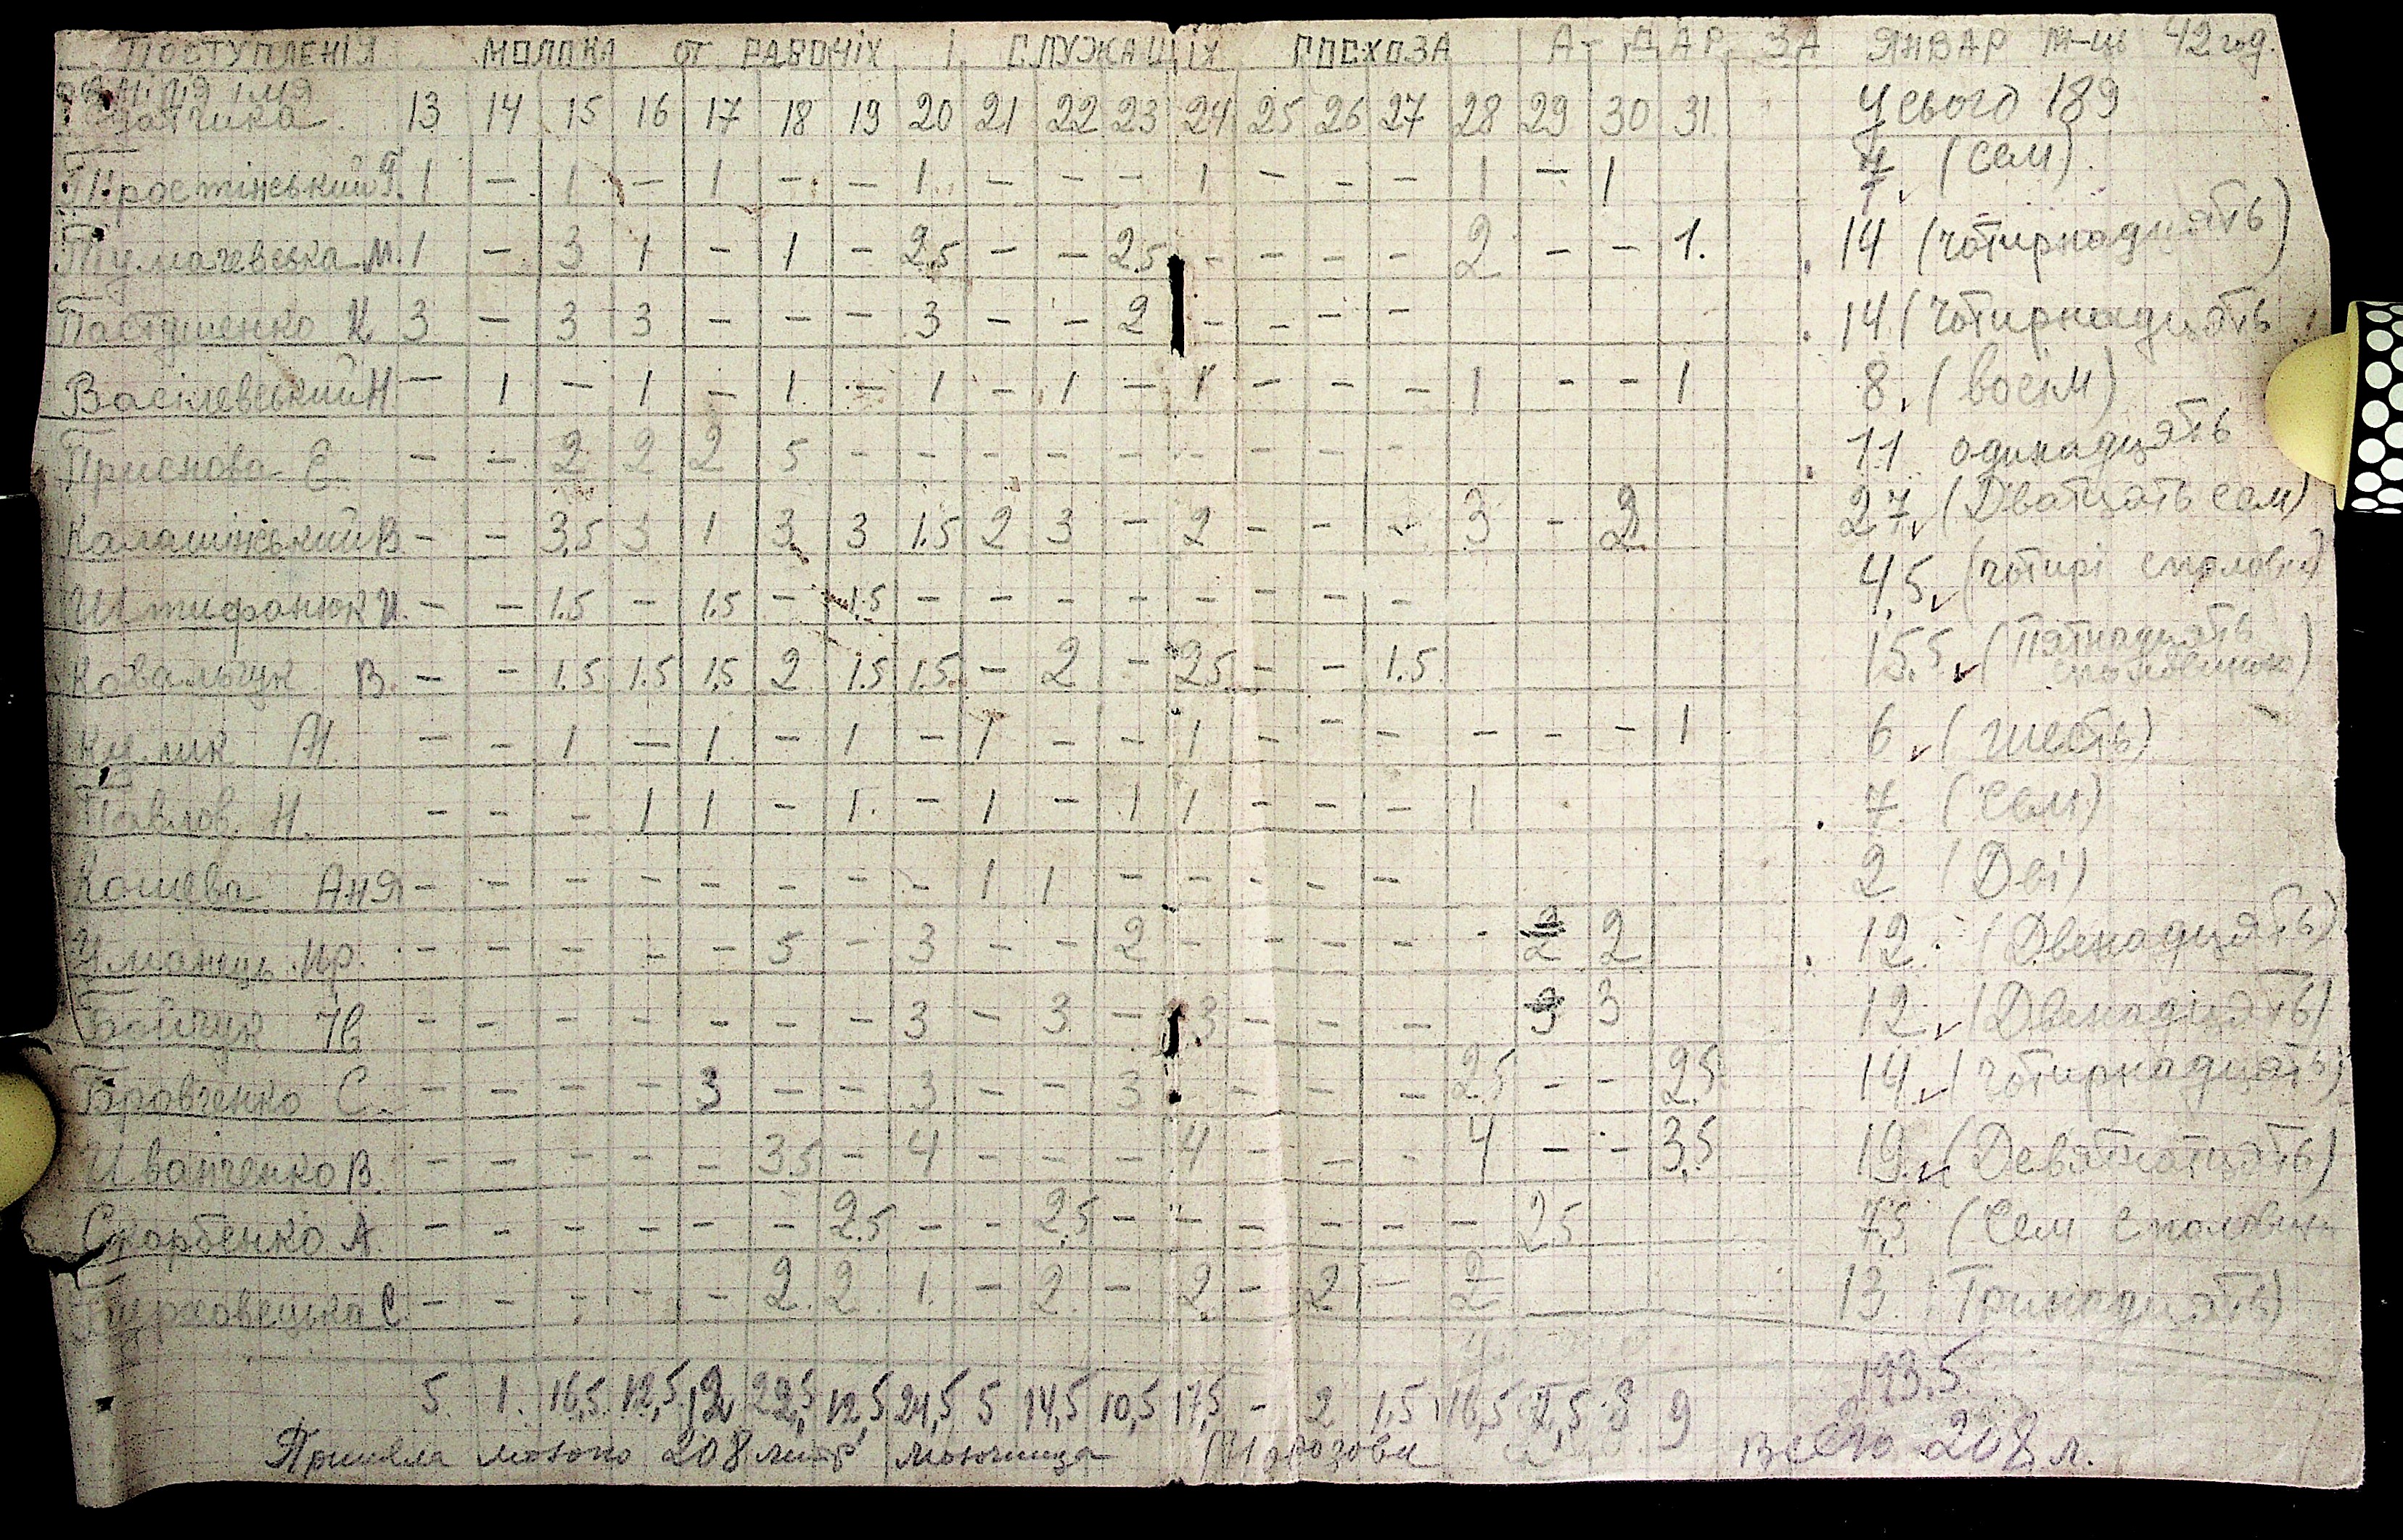 ПОСТУПЛЕНІЯ МОЛОКА от РАБОЧІХ І СЛУЖАЩІХ ГОСХОЗА А- ДАР ЗА ЯНВАР М-ць 42 год.
ФАМІЛІЯ ІМЯ
Здатчика 13 14 15 16 17 18 19 20 21 22 23 24 25 26 27 28 29 30 31 Усього 189
1 – 1 – 1 – – 1 – – – 1 – – – 1 – 1 7 (сем).
М. 1 – 3 1 – 1 – 2,5 – – 2,5 – – – – 2 – – 1. 14 (чотирнадцять)
Пастушенко И 3 – 3 3 – – – 3 – – 2 – – – – 14 (чотирнадцять
Василевський Н – 1 – 1 – 1 – 1 – 1 – 1 – – – 1 – – 1 8 (восім)
Е – – 2 2 2 5 – – – – – – – – – 11 одинадцять
Калашінський В – – 3,5 3 1 3 3 1.5 2 3 – 2 – – – 3 – 2 27 (Дватцать сем)
Штифонюк И. – – 1.5 – 1.5 – 1.5 – – – – – – – – 4,5 (чотирі споловин
Ковальчук В. – – 1.5 1.5 1.5 2 1.5 1.5 – 2 – 2.5 – – 1.5 15.5 (Пятнадцять споловиною)
Кулик М. – – 1 – 1 – 1 – 1 – – 1 – – – – – – 1 6 (шесть)
Павлов Н. – – – 1 1 – 1 – 1 – 1 1 – – – 1 7 (сем)
Кошева Аня – – – – – – – – 1 1 – – – – – 2 (Dві)
Уманець Ир. – – – – – 5 – 3 – – 2 – – – – - 2 2 12 (Двенадцять)
Бойчук Ів – – – – – – – 3 – 3 – 3 – – – 3 3 12 (Двенадцять)
С. – – – – 3 – – 3 – – 3 – – – 2.5 – – 2.5 14 (чотирнадцять)
Иванченко В. – – – – – 3.5 – 4 – – – 4 – – – 4 – – 3.5 19 (Девятнатцять)
Скорбенко А. – – – – – – 2.5 – – 2,5 – – – – – – 2.5 7,5 (Сем споловин
С – – – – – 2 2 1 – 2 – 2 – 2 – 2 13 Тринадцять)
5. 1. 16,5 12,5 12 22,5 12,5 24,5 5 14,5 10,5 17,5 – 2 1,5 16,5 7,5 8 9 193.5.
Приняла молоко 208 літр молочница Всего 208 л.